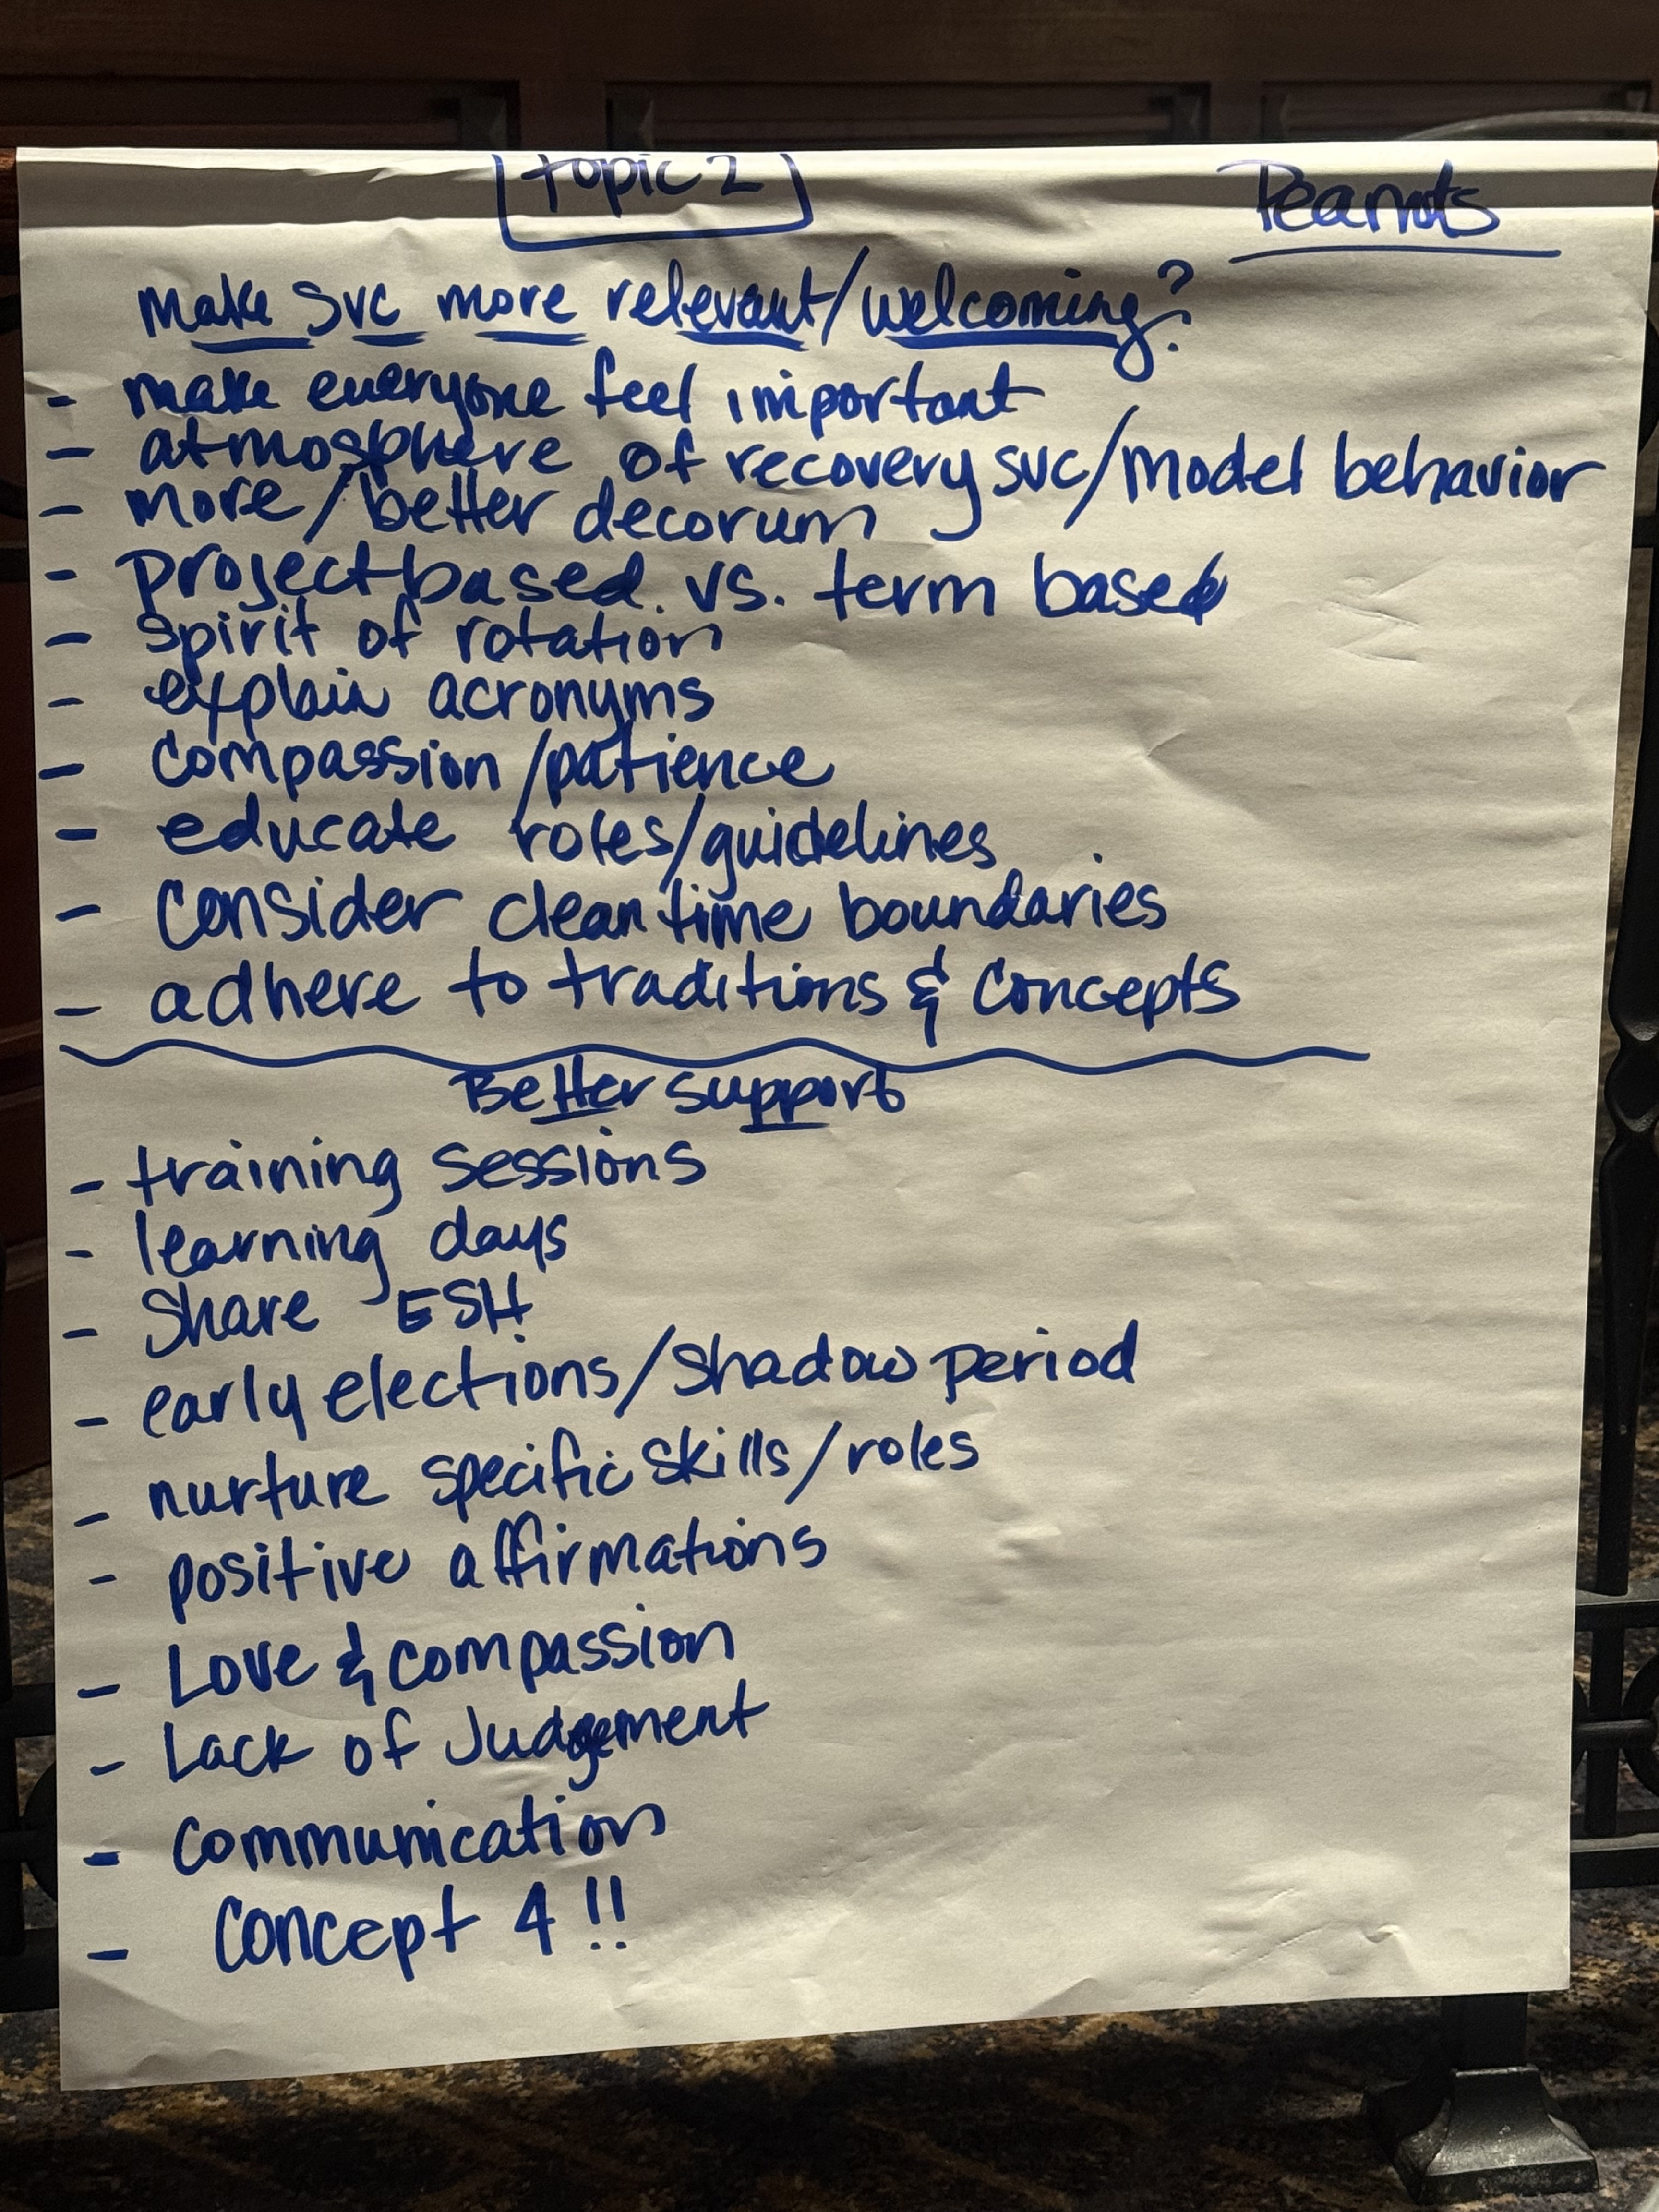 Topic 2
Peanuts
Make svc more relevant/welcoming?
- make everyone feel important
- atmosphere of recovery svc/model behavior
- more/better decorum
- project based vs. term based
- spirit of rotation
- explain acronyms
- compassion/patience
- educate roles/guidelines
- Consider clean time boundaries
- adhere to traditions & Concepts
Better support
- training sessions
- learning days
- Share ESH
- early elections/Shadow period
- nurture specific skills/roles
- positive affirmations
- Love & compassion
- Lack of Judgement
- Communication
- Concept 4!!